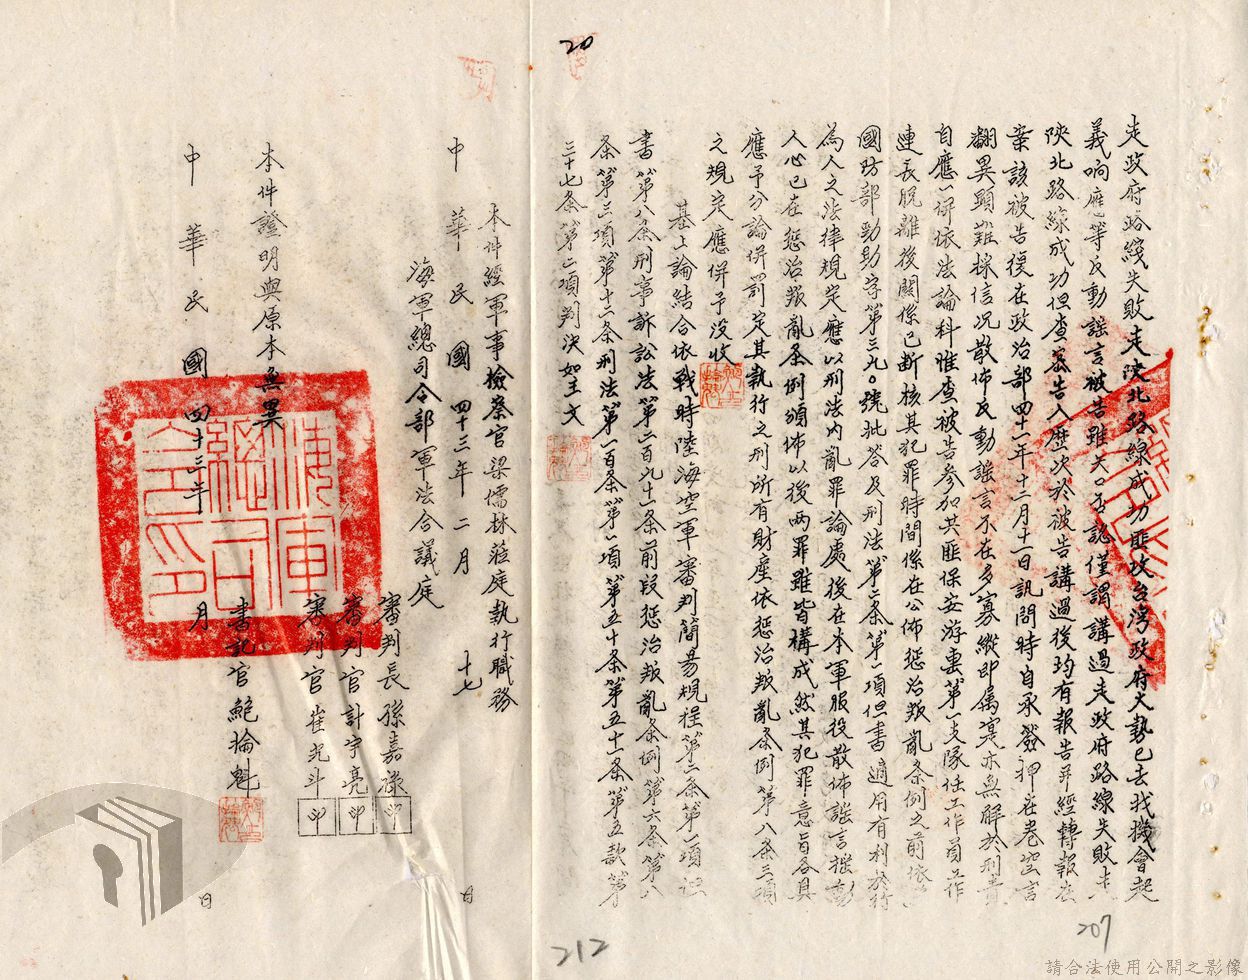 走政府路綫失敗走陝北路線成功匪攻台灣政府大勢已去找機會起
義响應等反動謠言被告雖矢口否認僅謂講過走政府路線失敗走
陝北路線成功但查密告人歷次於被告講過後均有報告并經轉報在
案該被告復在政治部四十一年十二月十一日訊問時自承簽押在卷空言
翻異顯難採信况散佈反動謠言不在多寡縱即屬寔亦無解於刑責
自應併依法論科惟查被告參加共匪保安游击第一支隊任工作員工作
連長脫離後關係已断核其犯罪時間係在公佈惩治叛亂条例之前依
國防部勁助字第三九〇號批答及刑法第二条第一項但書適用有利於行
為人之法律規定應以刑法內亂罪論處後在本軍服役散佈謠言摇彰
人心已在惩治叛亂条例頒佈以後两罪雖皆構成然其犯罪意旨各具
應予分論併罰定其執行之刑所有財產依惩治叛亂条例第八条三項
之規定應併予没收
基上論結合依戰時陸海空軍審判簡易規程第二条第一項
書第八条刑事訴訟法第二百九十一条前段惩治叛亂条例第六条第八
条第三項第十二条刑法第一百条第一項第五十条第五十一条第五款第
三十七条第二項判决如主文
本件經軍事檢察官梁儒林蒞庭執行職務
中華民國四十三年二月十七日
海軍總司令部軍法合議庭
審判長孫嘉祿印
審判官計宇亮印
審判官崔光斗印
本件證明與原本無異
書記官鮑掄魁
中華民國四十三年月日
海軍總司令印
20
212
207
請合法使用公開之影像